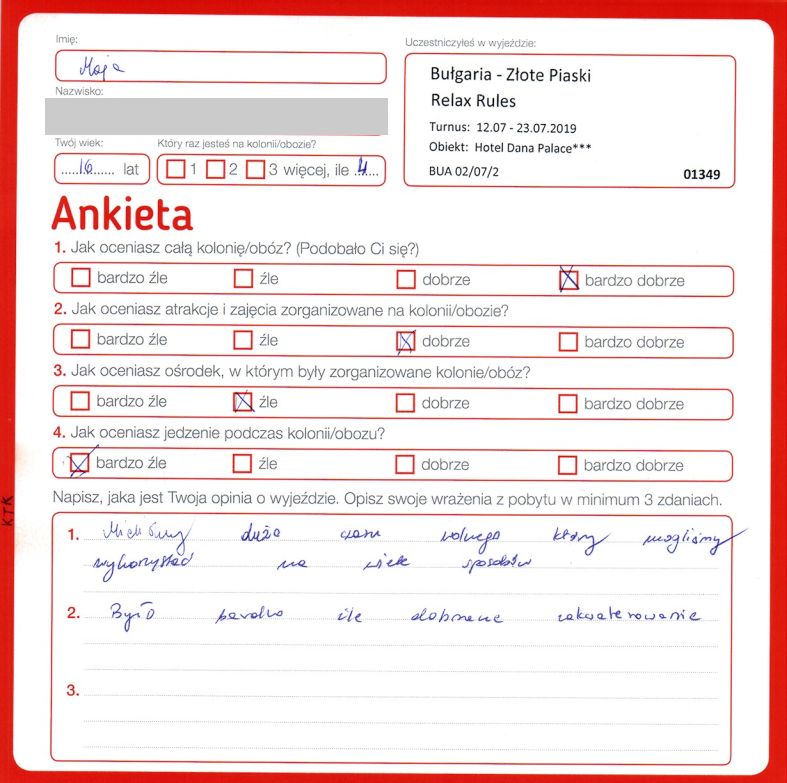 Imię:
Maja
Uczestniczyłeś w wyjeździe:
Bułgaria - Złote Piaski
Relax Rules
Turnus: 12.07 - 23.07.2019
Obiekt: Hotel Dana Palace***
BUA 02/07/2 01349
Nazwisko:
Twój wiek:
16 lat
Który raz jesteś na kolonii/obozie?
1 2 3 więcej, ile 4
Ankieta
1. Jak oceniasz całą kolonię/obóz? (Podobało Ci się?)
bardzo źle źle dobrze bardzo dobrze
2. Jak oceniasz atrakcje i zajęcia zorganizowane na kolonii/obozie?
bardzo źle źle dobrze bardzo dobrze
3. Jak oceniasz ośrodek, w którym były zorganizowane kolonie/obóz?
bardzo źle źle dobrze bardzo dobrze
4. Jak oceniasz jedzenie podczas kolonii/obozu?
bardzo źle źle dobrze bardzo dobrze
Napisz, jaka jest Twoja opinia o wyjeździe. Opisz swoje wrażenia z pobytu w minimum 3 zdaniach.
1. Mieliśmy dużo czasu wolnego który mogliśmy
wykorzystać na wiele sposobów
2. Było bardzo źle dobrane zakwaterowanie
3.
KTK